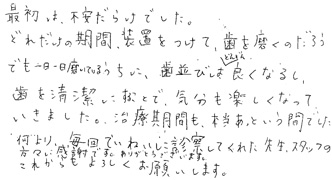 最初は、不安だらけでした。
どれだけの期間、装置をつけて、歯を磨くのだろう
でも一日一日磨いているうちに、歯並びはどんどん良くなるし、
歯を清潔にすることで、気分も楽しくなって
いきました。治療期間も、本当あっという間でした
何より、毎回ていねいに診察してくれた先生、スタッフの
方々に感謝です。ありがとうございます。
これからもよろしくお願いします。